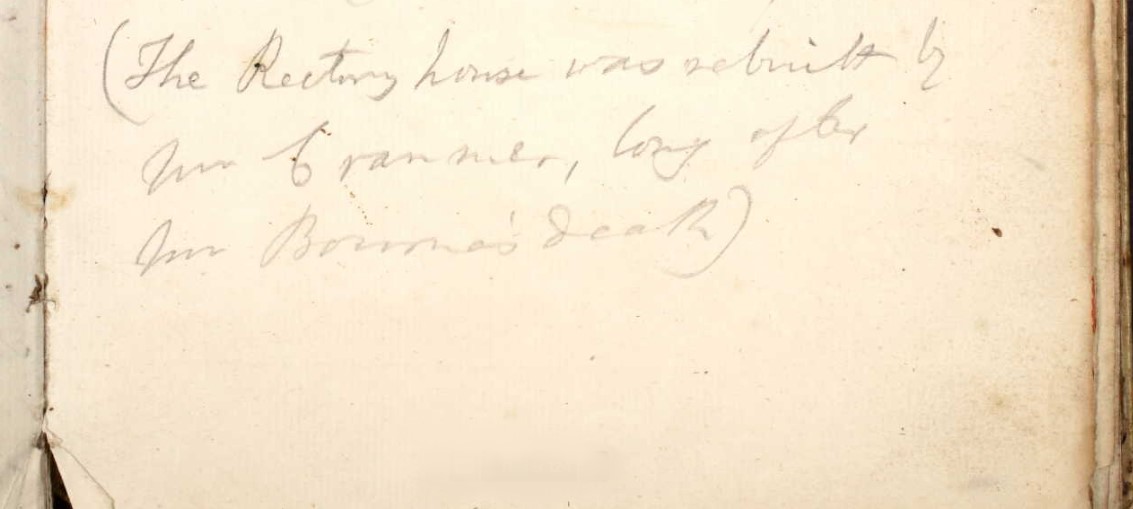 (The Rectory house was rebuilt by
Mr Cranmer, long after
Mr Bourne's death)